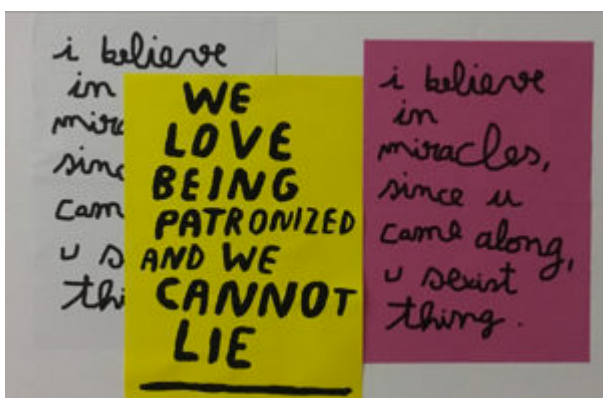 i believe
in
mira
sinc
cam
u s
thi
WE
LOVE
BEING
PATRONIZED
AND WE
CANNOT
LIE
i believe
in
miracles,
since u
came along,
u sexist
thing.